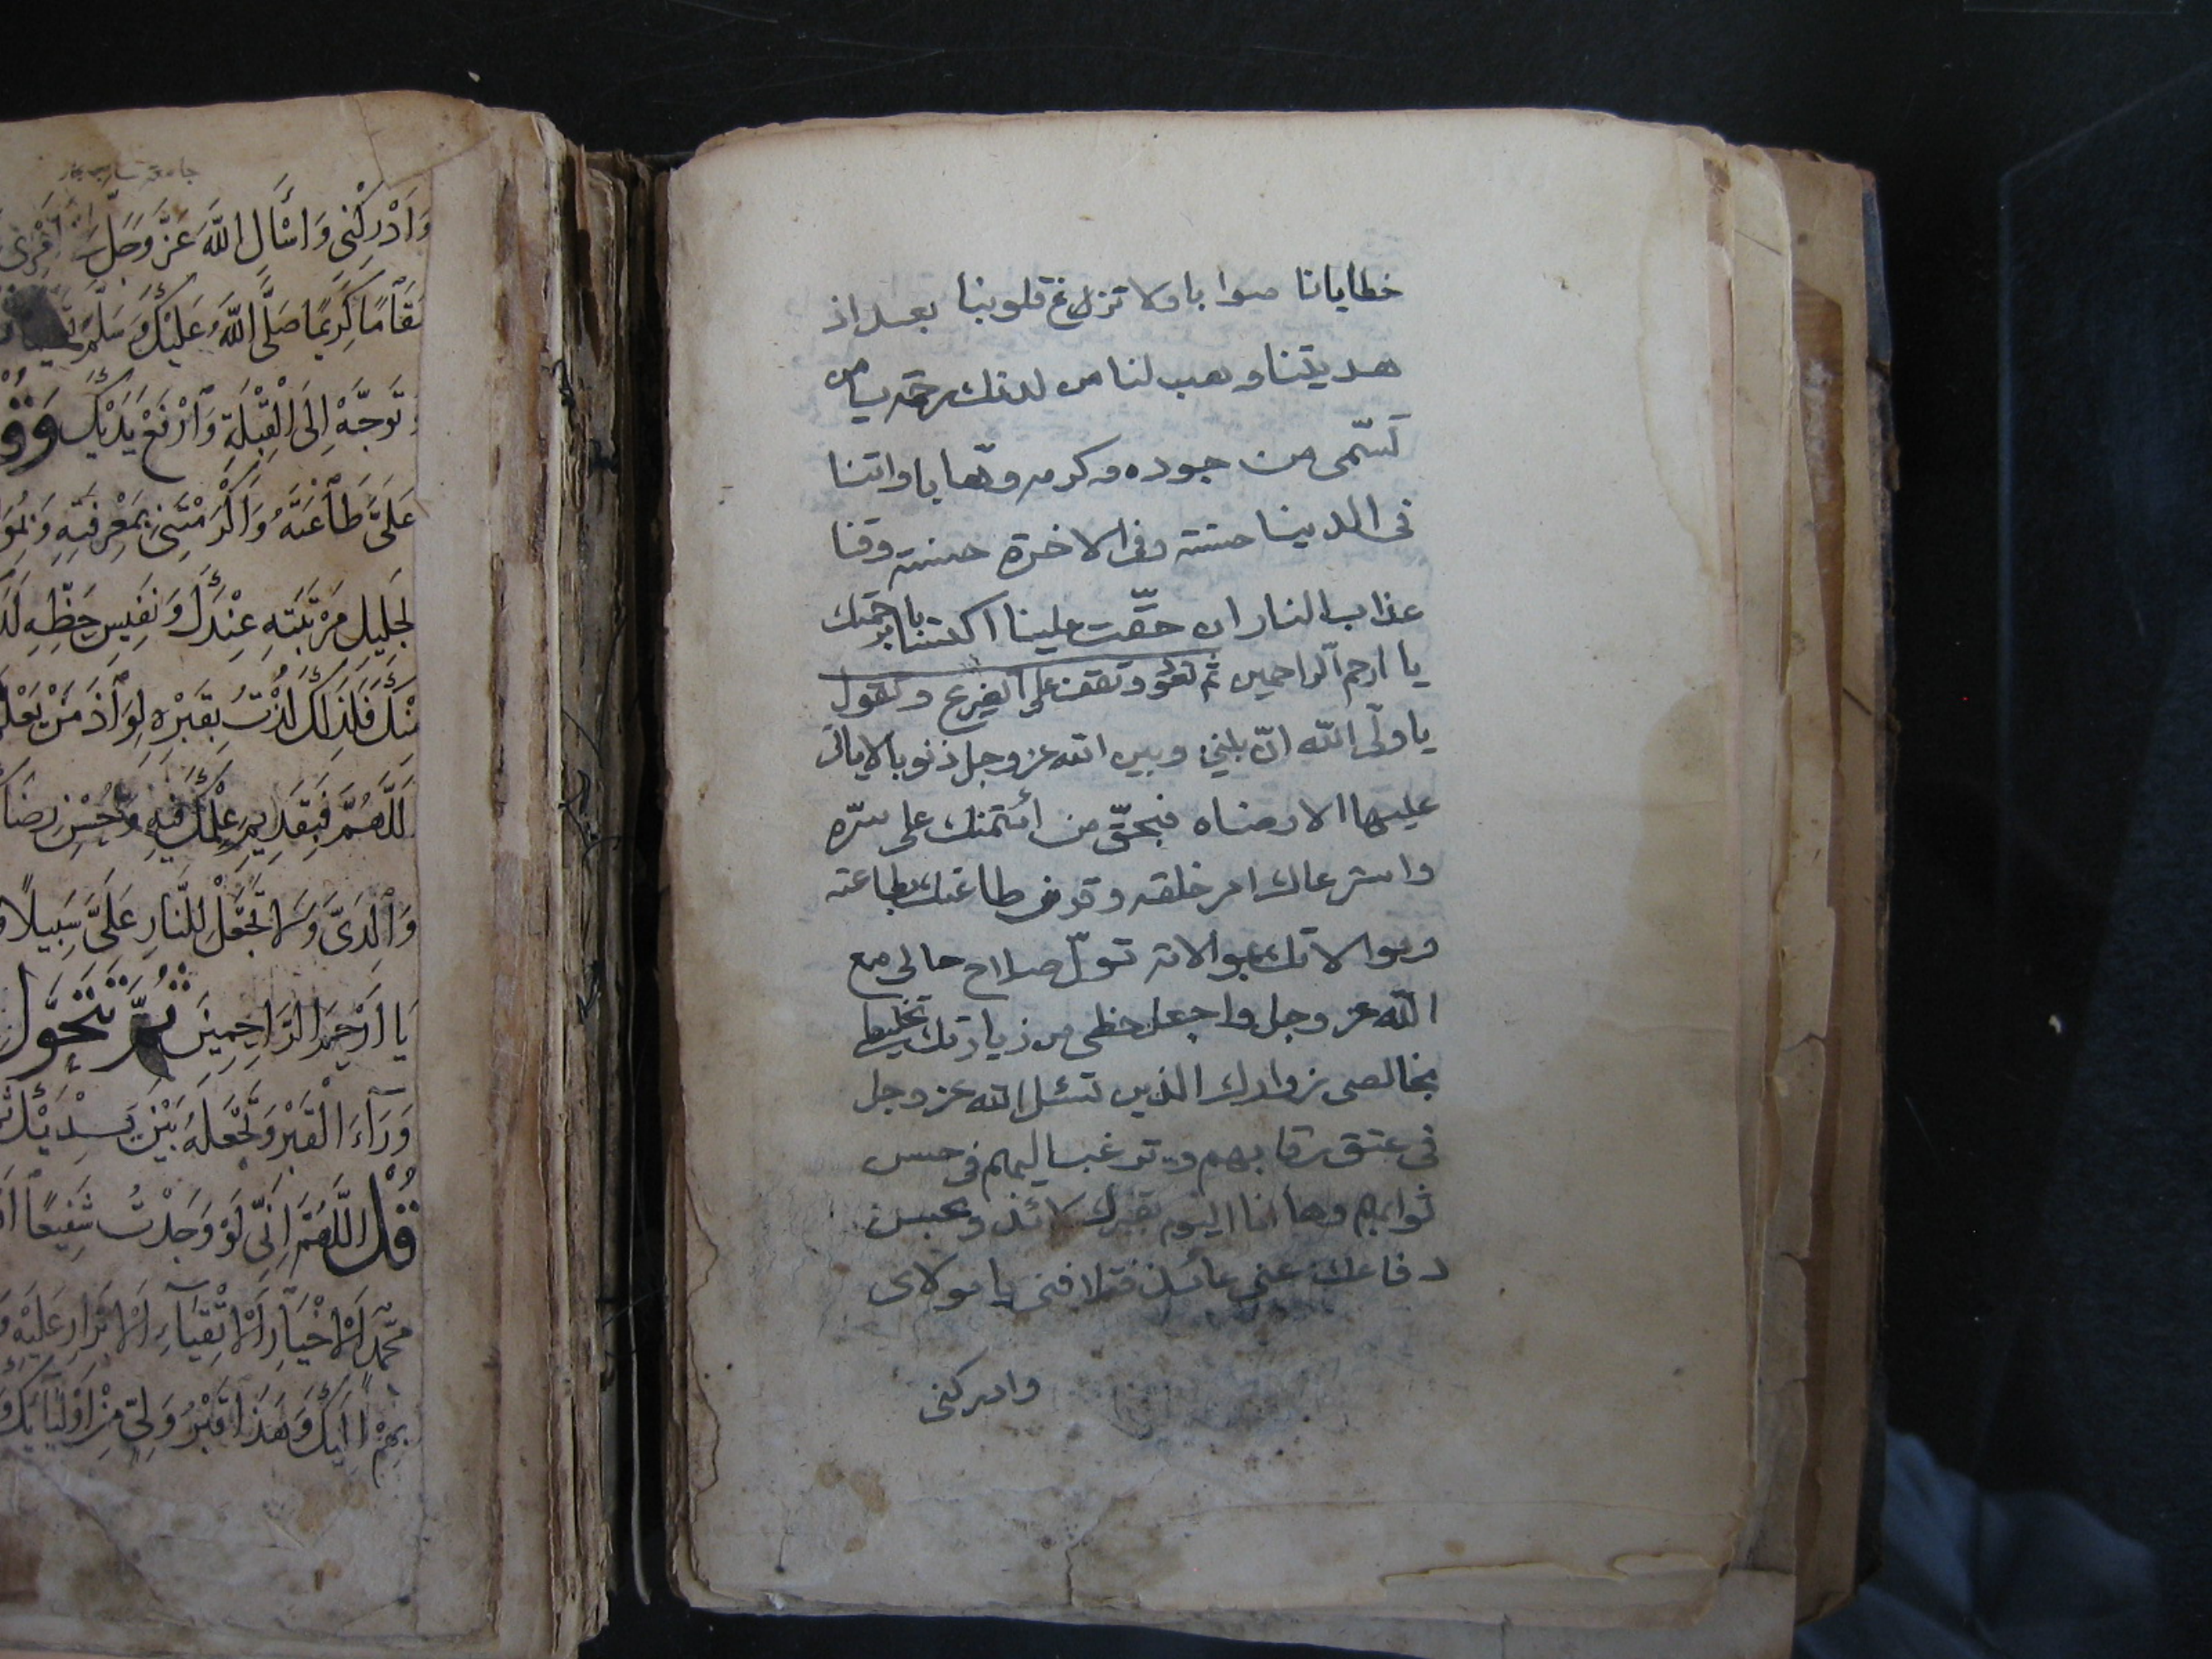 خطايانا صوابا ولا تزغ قلوبنا بعد اذ
هديتنا وهب لنا من لدنك رحمة يا من
تسّمى من جوده وكرمه وهّابا واتنا
فى الدينا حسنة وفى الاخرة حسنة وقنا
عذاب النار ان حقّت علينا اكتسابا برحمتك
يا ارحم الراحمين ثم تقف على الضريح وتقول
يا ولّى اللّه انّ بيني وبين الله عز وجل ذنوبا لا ياتى
عليها الا رضاه فبحقّ من أئتمنك على سرّه
واسترعاك امر خلقه وقرن طاعتك بطاعته
وموالاتك بموالاته تولّ صلاح حالى مع
اللّه عز وجل واجعل حظى من زيارتك تخليطى
بخالصى زوارك الذين تسئل الله عز وجل
فى عتق رقابهم وترغب اليهم فى حسن
ثوابهم وها انا اليوم بقبرك لائذ وبحسن
دفاعك عنى عائذ فتلافنى يا مولاى
وادركنى
وَاَدْرِكْنى وَاسْأَلِ اللّٰهَ عَزَّ وَجَلَّ
مَقَامًا كَرِيمًا صَلَّى اللّٰهُ عَلَيْكَ وَسَلَّمَ
تَوَجَّهْ اِلَى الْقِبْلَةِ وَارْفَعْ يَدَيْكَ وَقُ
عَلَىَّ طَاعَتَهُ وَاَكْرَمْتَنِى بِمَعْرِفَتِهِ
لِجَلِيلِ مَرْتَبَتِهِ عِنْدَكَ وَنَفِيسِ حَظِّهِ
مِنْكَ فَلِذٰلِكَ لُذْتُ بِقَبْرِهِ لِوَاذَ مَنْ يَعْلَ
اَللّٰهُمَّ فَبِقَدِيمِ عِلْمِكَ فِيهِ وَحُسْنِ رِضَا
وَالِدَىَّ وَلَا تَجْعَلْ لِلنَّارِ عَلَىَّ سَبِيلًا
يَا اَرْحَمَ الرَّاحِمِينَ ثُمَّ تَتَحَوَّلُ
وَرَاءَ الْقَبْرِ وَتَجْعَلُهُ بَيْنَ يَدَيْكَ
قُلِ اللّٰهُمَّ اِنِّى لَوْ وَجَدْتُ شَفِيعًا
مُحَمَّدٍ الْاَخْيَارِ الْاَتْقِيَاءِ الْاَبْرَارِ عَلَيْهِ
بِهِمْ اِلَيْكَ وَهٰذَا قَبْرُ وَلِىٍّ مِنْ اَوْلِيَائِكَ